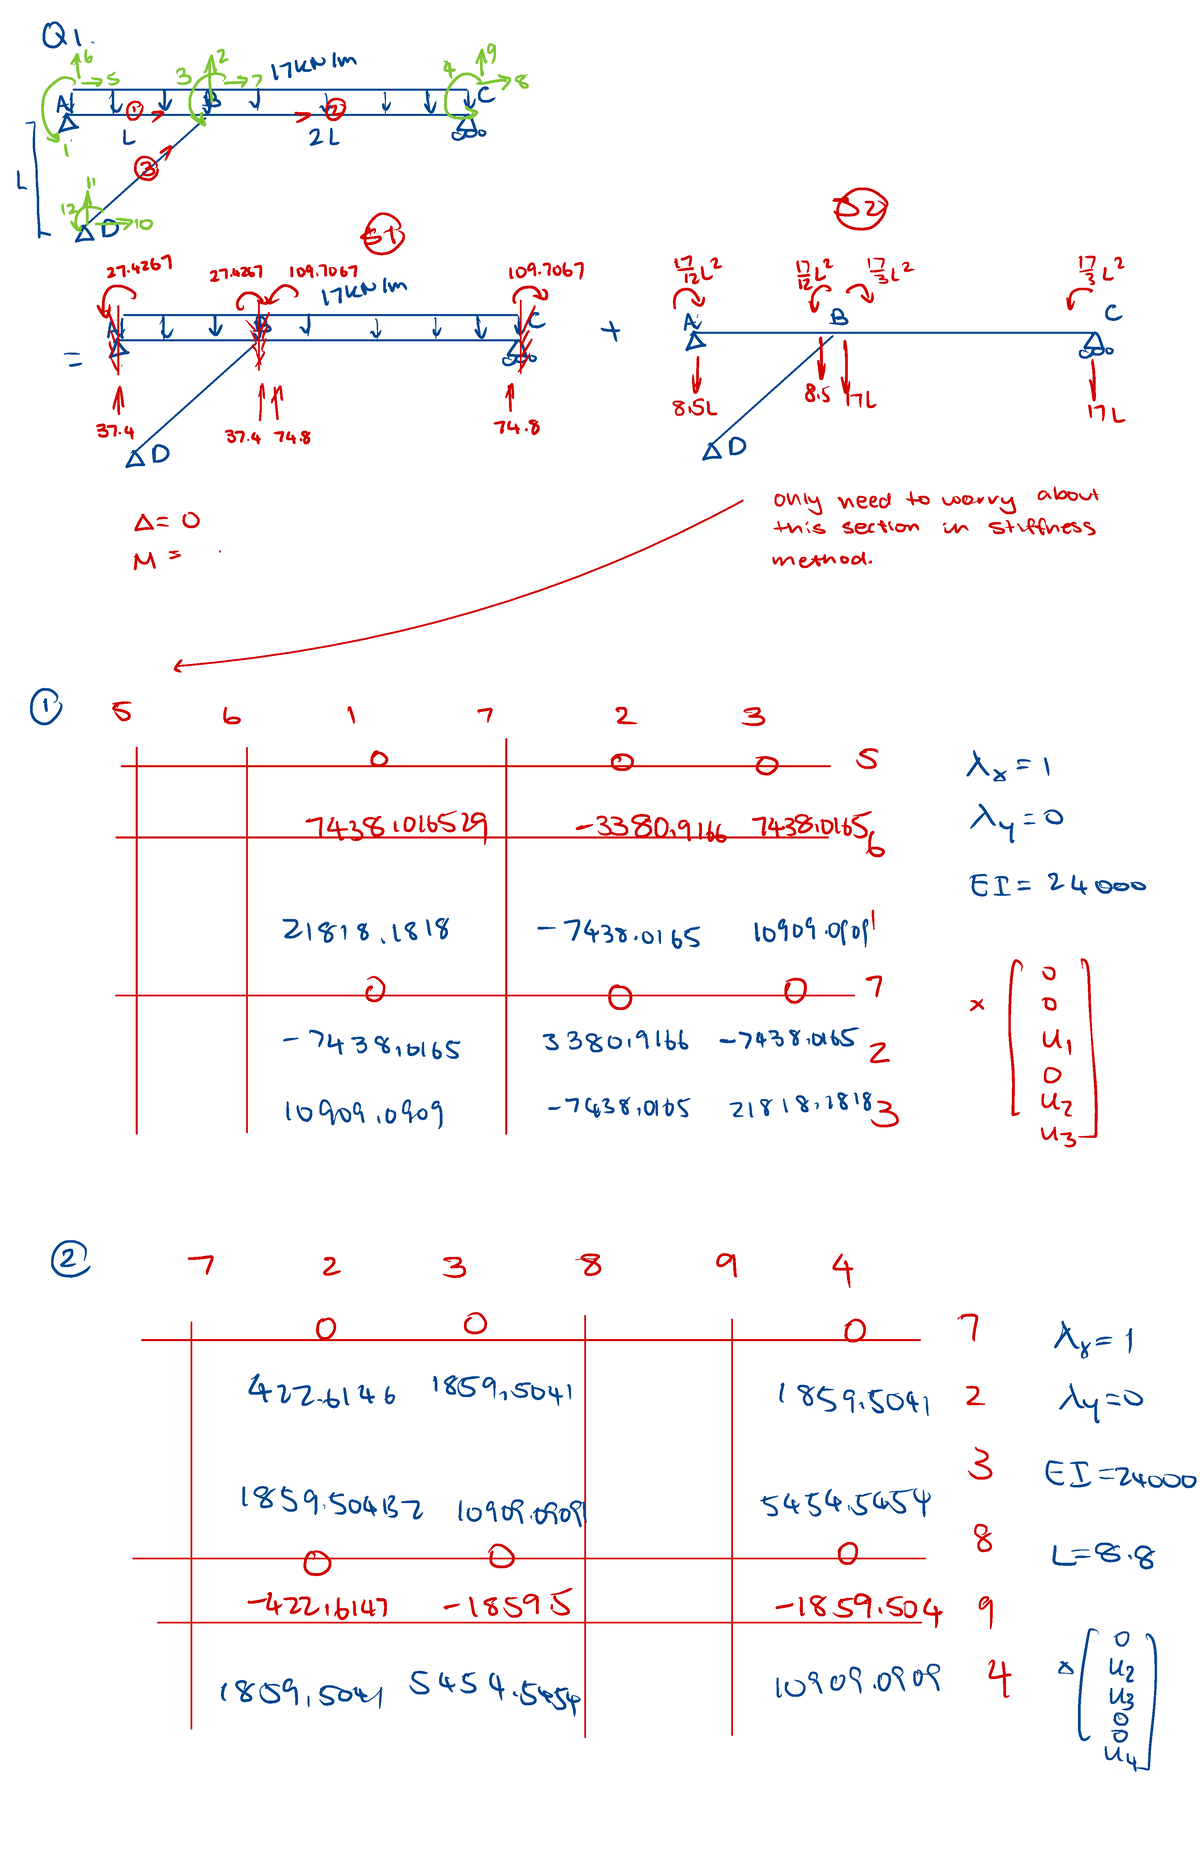 Q1.
6 2 9
5 3 7 17KN/m 4 8
A 1 B 2 C
L 2L
1
3
L
11
12 D 10
S1 S2
27.4267 27.4267 109.7067 109.7067
17KN/m
A B C
=
37.4 37.4 74.8 74.8
D
+
17/12 L² 17/12 L² 17/3 L² 17/3 L²
A B C
8.5L 8.5 17L 17L
D
Δ= 0
M =
only need to worry about
this section in stiffness
method.
1 5 6 1 7 2 3
0 0 0 5
7438.016529 -3380.9166 7438.0165 6
21818.1818 -7438.0165 10909.0909 1
0 0 0 7
-7438.0165 3380.9166 -7438.0165 2
10909.0909 -7438.0165 21818.1818 3
λx = 1
λy = 0
EI = 24000
×
0
0
u1
0
u2
u3
2 7 2 3 8 9 4
0 0 0 7
422.6146 1859.5041 1859.5041 2
3
1859.504132 10909.0909 5454.5454
8
0 0 0
-422.6147 -1859.5 -1859.504 9
1859.5041 5454.5454 10909.0909 4
λx = 1
λy = 0
EI = 24000
L = 8.8
×
0
u2
u3
0
0
u4